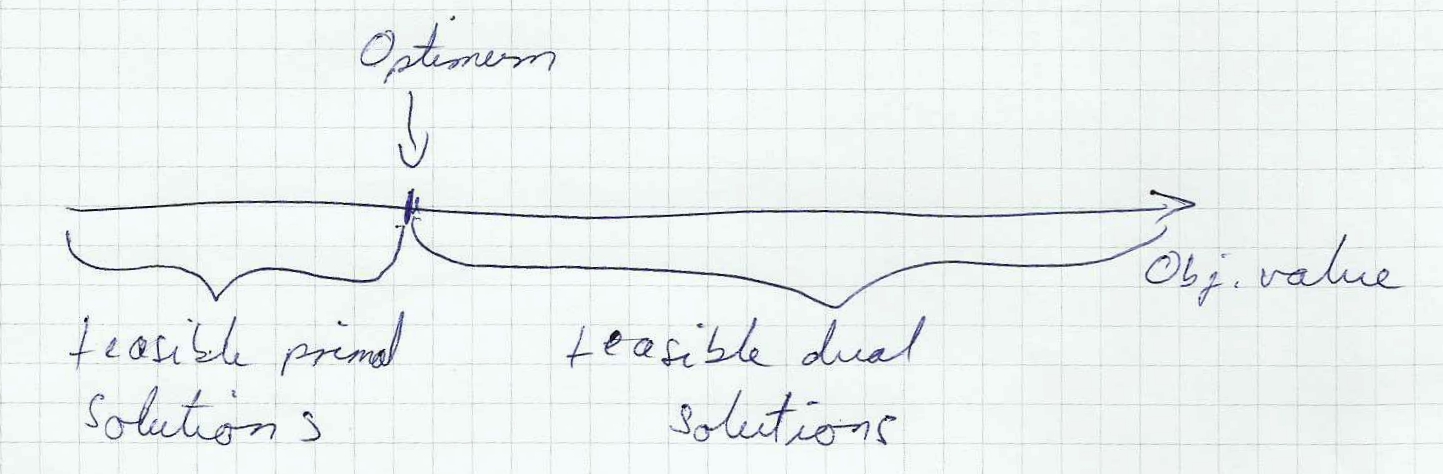 Optimum
Obj. value
feasible primal
solutions
feasible dual
solutions